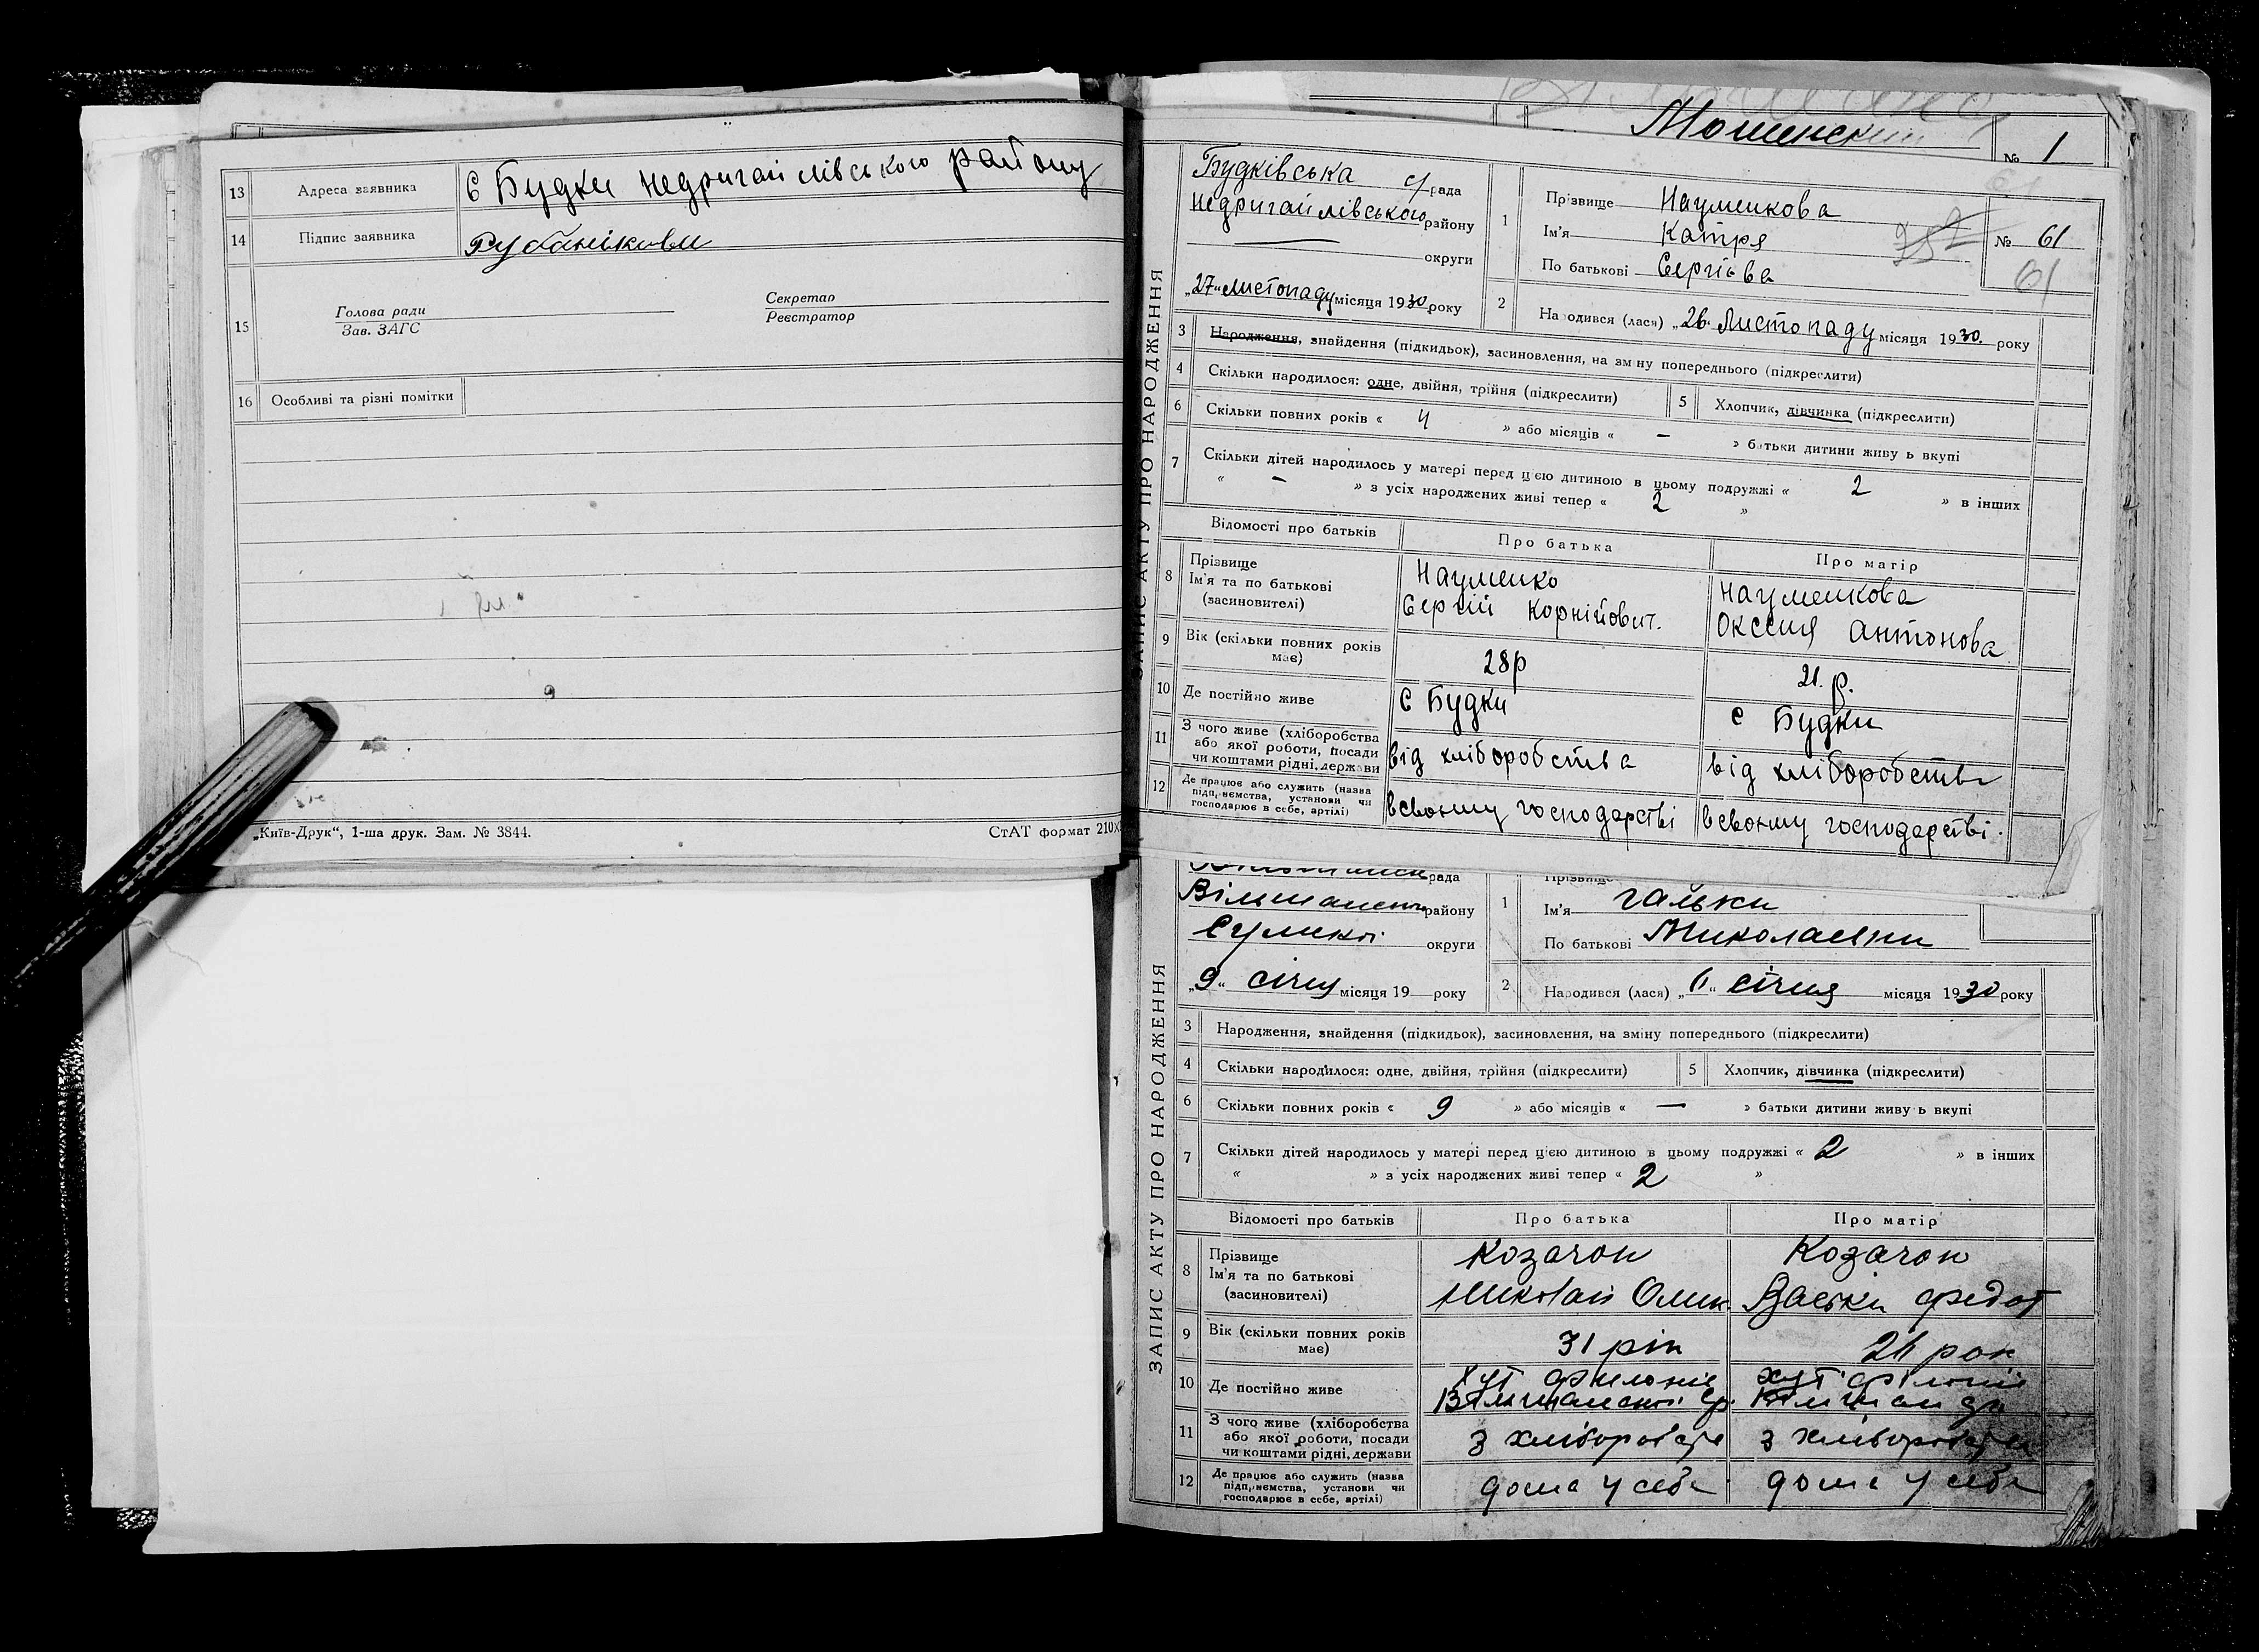 13 Адреса заявника с Будки Недригайлівського району
14 Підпис заявника
15 Голова ради Секретар
Зав. ЗАГС Реєстратор
16 Особливі та різні помітки
„Київ-Друк“, 1-ша друк. Зам. № 3844. СтАТ формат 210X
№ 1
ЗАПИС АКТУ ПРО НАРОДЖЕННЯ
Будківська с/рада
Недригайлівського району
округи
„27“ листопаду місяця 1930 року
1 Прізвище Науменкова
Ім'я Катря
По батькові Сергієва
№ 61
61
2 Народився (лася) „26“ Листопаду місяця 1930 року
3 Народження, знайдення (підкидьок), засиновлення, на зміну попереднього (підкреслити)
4 Скільки народилося: одне, двійня, трійня (підкреслити) 5 Хлопчик, дівчинка (підкреслити)
6 Скільки повних років « 4 » або місяців « — » батьки дитини живуть вкупі
7 Скільки дітей народилось у матері перед цією дитиною в цьому подружжі « 2 » в інших
« — » з усіх народжених живі тепер « 2 »
Відомості про батьків Про батька Про матір
8 Прізвище Ім'я та по батькові (засновителі) Науменко Сергій Корнійович. Науменкова Оксения Антонова
9 Вік (скільки повних років має) 28р 21. р.
10 Де постійно живе с Будки с Будки
11 З чого живе (хліборобства або якої роботи, посади чи коштами рідні, держави від хліборобства від хліборобства
12 Де працює або служить (назва підприємства, установи чи господарює в себе, артілі) всвойму господарстві всвойму господарстві.
ЗАПИС АКТУ ПРО НАРОДЖЕННЯ
рада
району
Сумської округи
„9“ січня місяця 19 року
1 Прізвище
Ім'я Гальки
По батькові Миколаевни
2 Народився (лася) січня місяця 1930 року
3 Народження, знайдення (підкидьок), засиновлення, на зміну попереднього (підкреслити)
4 Скільки народилося: одне, двійня, трійня (підкреслити) 5 Хлопчик, дівчинка (підкреслити)
6 Скільки повних років « 9 » або місяців « — » батьки дитини живуть вкупі
7 Скільки дітей народилось у матері перед цією дитиною в цьому подружжі « 2 » в інших
« » з усіх народжених живі тепер « 2 »
Відомості про батьків Про батька Про матір
8 Прізвище Ім'я та по батькові (засиновителі) Козачок Николай Олик. Козачок Федот
9 Вік (скільки повних років має) 31 рік рок
10 Де постійно живе хут
11 З чого живе (хліборобства або якої роботи, посади чи коштами рідні, держави з з
12 Де працює або служить (назва підприємства, установи чи господарює в себе, артілі) дома у себе дома у себе